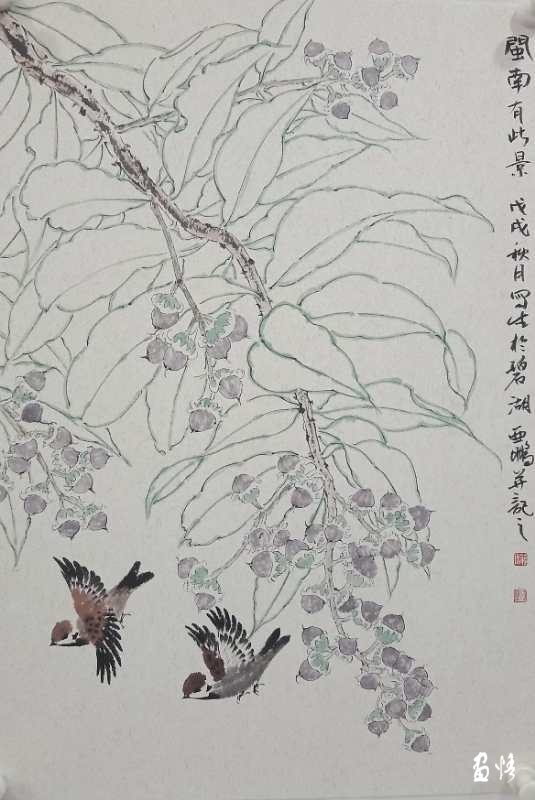 閩南有此景 戊戌秋月寫生於碧湖 亞鵬并記之
画悟